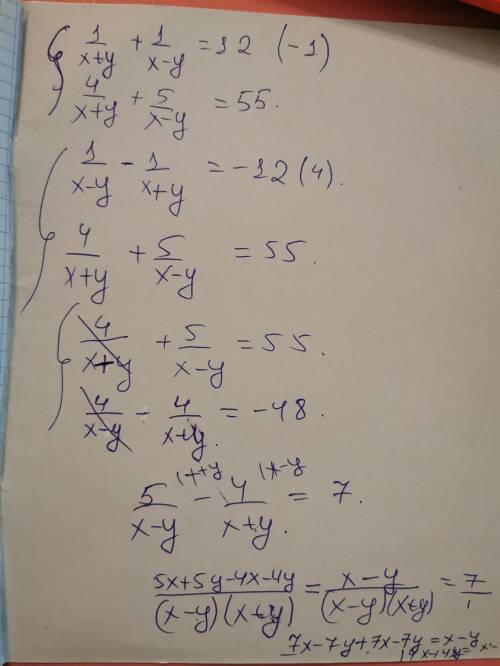 1/(x+y) + 1/(x-y) = 12 (-1)
4/(x+y) + 5/(x-y) = 55.
1/(x-y) - 1/(x+y) = -12 (4).
4/(x+y) + 5/(x-y) = 55.
4/(x+y) + 5/(x-y) = 55.
4/(x-y) - 4/(x+y) = -48.
5/(x-y) |x+y - 4/(x+y) |x-y = 7.
(5x+5y-4x-4y)/((x-y)(x+y)) = (x-y)/((x-y)(x+y)) = 7/1
7x-7y+7x-7y = x-y